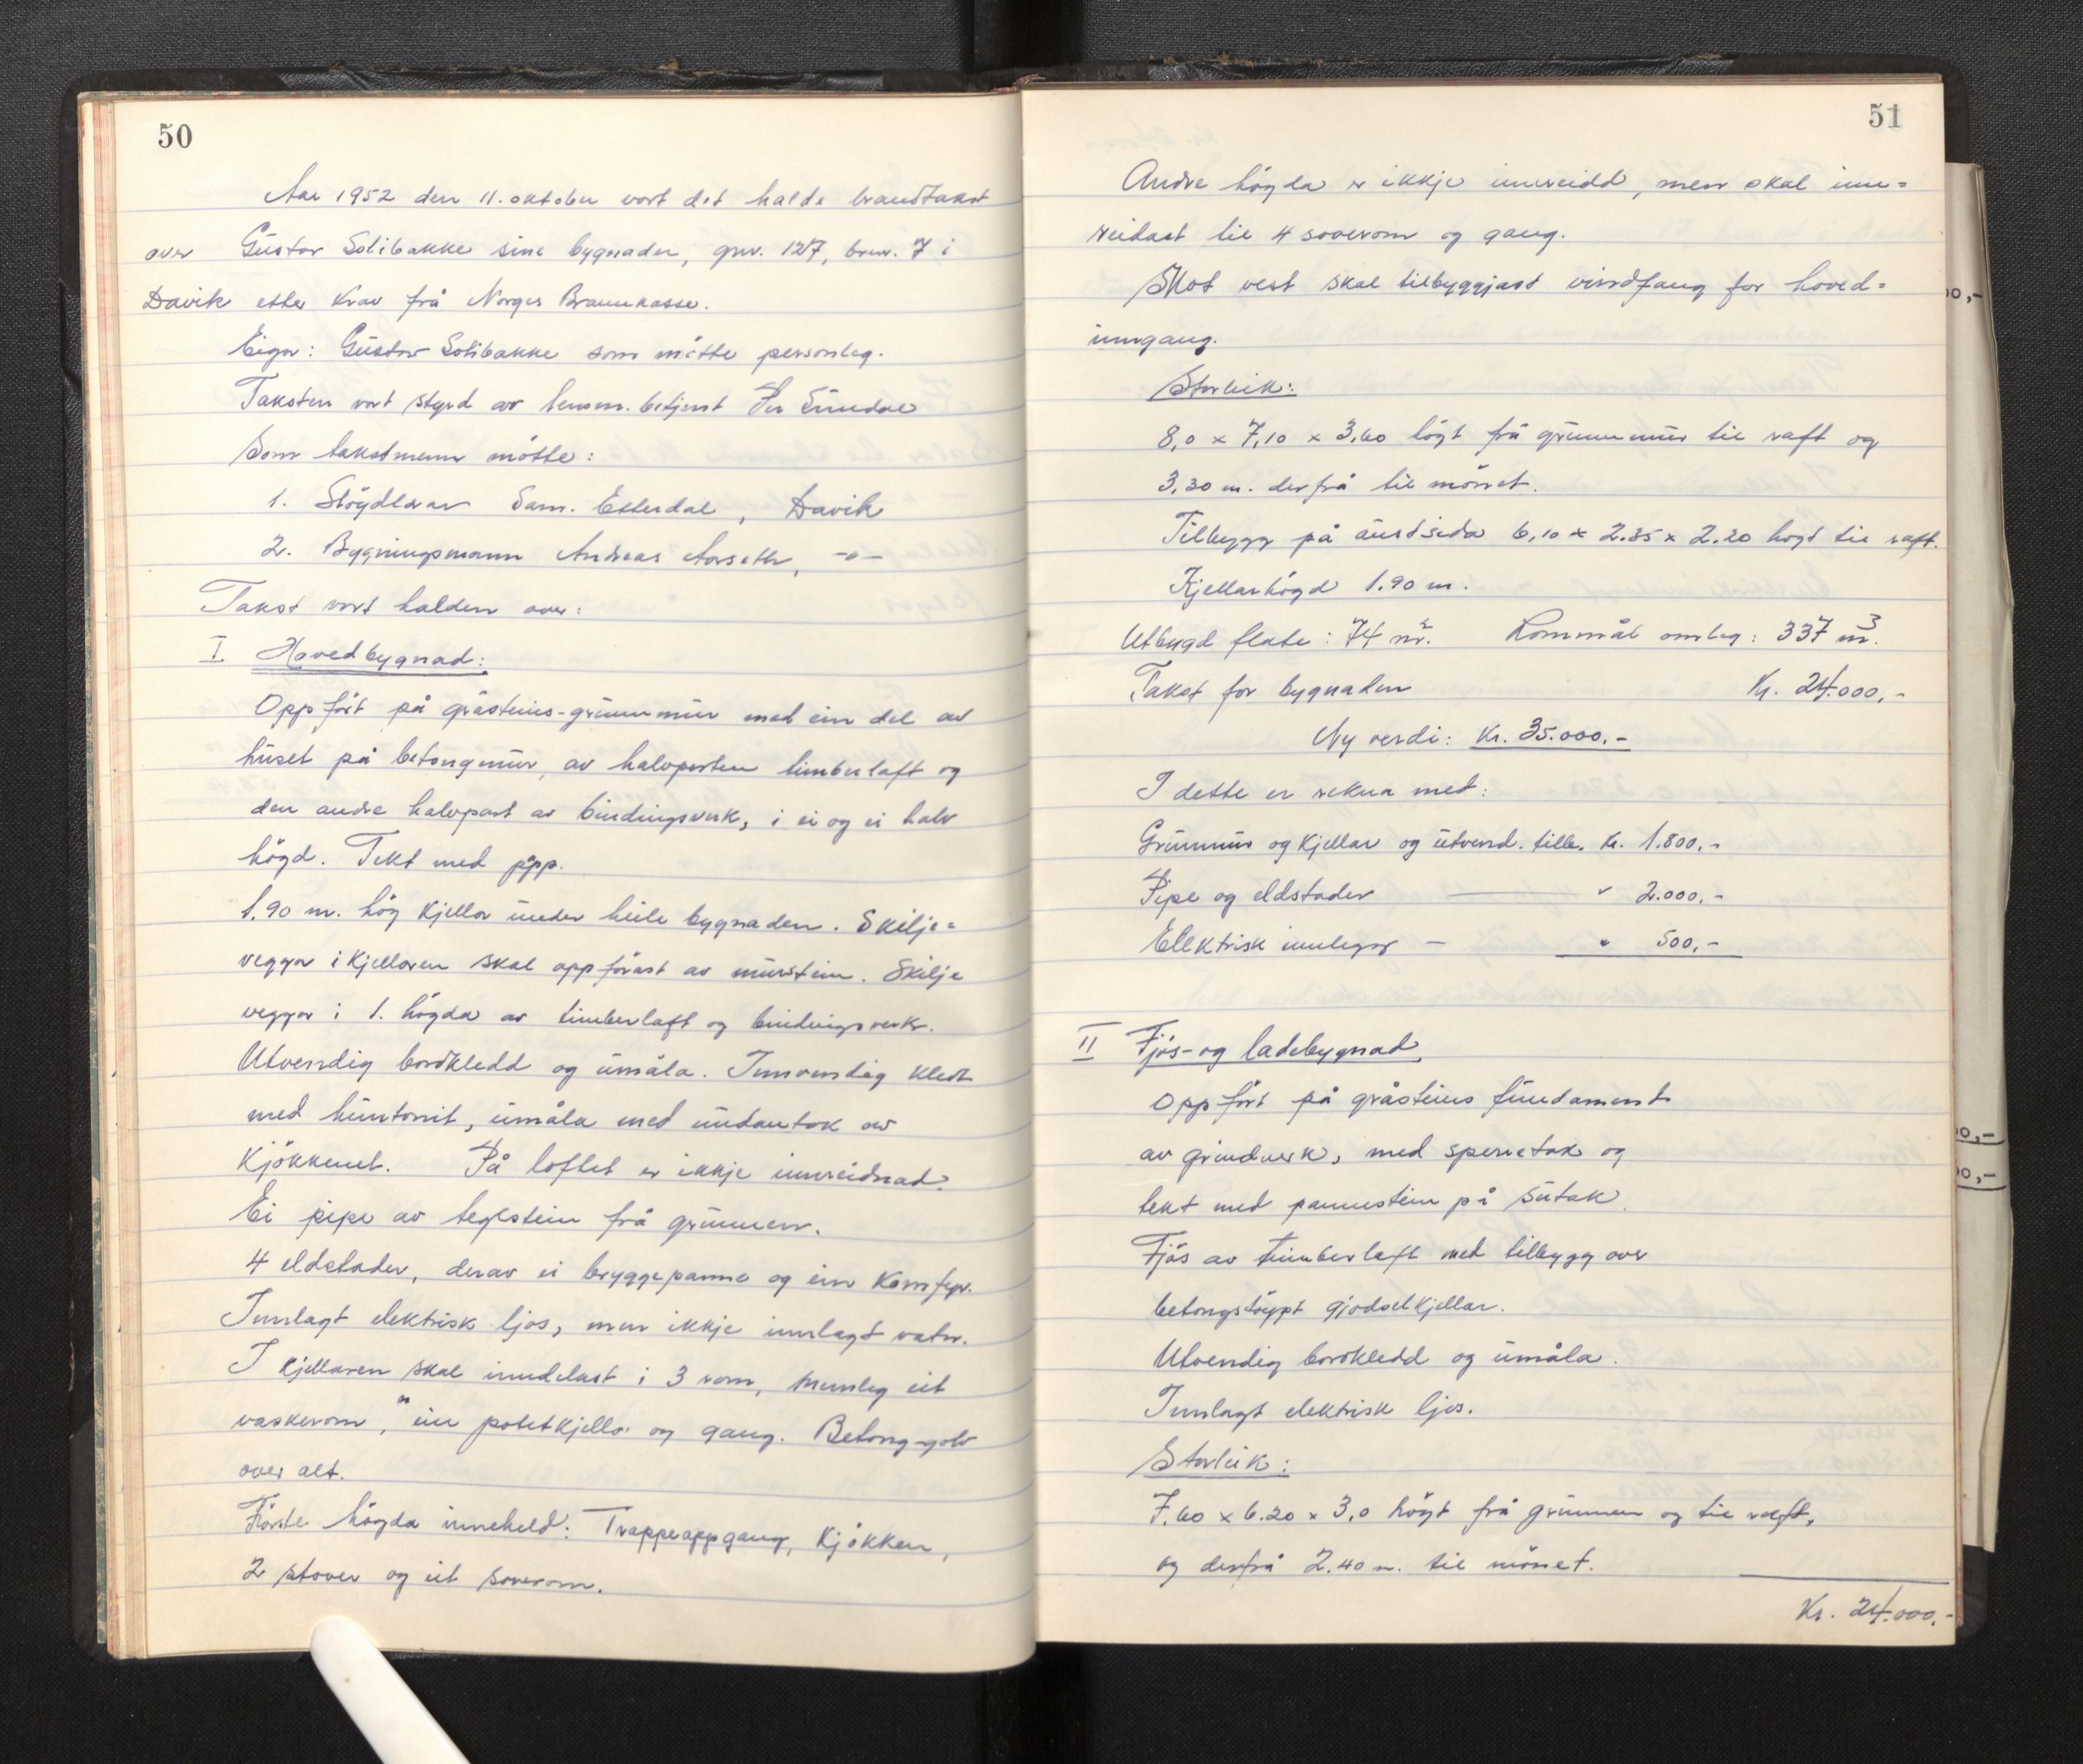 50
Aar 1952 den 11. oktober vart det halde brandtakst
over Gustav Solibakke sine bygnader, gnr. 127, bnr. 7 i
Davik etter krav frå Norges Brannkasse.
Eigar: Gustav Solibakke som møtte personleg.
Taksten vart styrd av lensm. betjent Per Sundal
Som takstmenn møtte:
1. Sløydlærar Sam. Etterdal, Davik
2. Bygningsmann Andreas Aarseth, -"-
Takst vart halden over:
I Hovedbygnad:
Oppført på gråsteins-grunnmur med ein del av
huset på betongmur, av halvparten timberlaft og
den andre halvpart av bindingsverk, i ei og ei halv
høgd. Tekt med papp.
1.90 m. høg kjellar under heile bygnaden. Skilje=
veggar i kjellaren skal oppførast av murstein. Skilje
veggar i 1. høgda av timberlaft og bindingsverk.
Utvendig bordkledd og umåla. Innvendig kledt
med huntonit, umåla med undantak av
kjøkkenet. På loftet er ikkje innreidnad.
Ei pipe av teglstein frå grunnen.
4 eldstader, derav ei bryggepanne og ein komfyr.
Innlagt elektrisk ljos, men ikkje innlagt vatn.
I kjellaren skal inndelast i 3 rom, nemleg eit
vaskerom, ein potetkjellar og gang. Betonggolv
over alt.
Første høgda inneheld: Trappeoppgang, kjøkken,
2 stover og eit soverom.
51
Andre høgda er ikkje innreidd, men skal inn=
reidast til 4 soverom og gang.
Mot vest skal tilbyggjast vindfang for hoved=
inngang.
Storleik:
8,0 x 7,10 x 3,60 høgt frå grunnmur til raft og
3,30 m. derfrå til mønet.
Tilbygg på austsida 6,10 x 2.35 x 2.20 høgt til raft.
Kjellarhøgd 1.90 m.
Utbygd flate: 74 m². Rommål omlag: 337 m³.
Takst for bygnaden Kr. 24.000,-
Ny verdi: Kr. 35.000,-
I dette er rekna med:
Grunnmur og kjellar og utvend. tilh. kr. 1.800,-
Pipe og eldstader — " 2.000,-
Elektrisk innlegg — " 500,-
II Fjøs- og ladebygnad.
Oppført på gråsteins fundament
av grindverk, med sperretak og
tekt med pannestein på sutak.
Fjøs av timberlaft med tilbygg over
betongstøypt gjødselkjellar.
Utvendig bordkledd og umåla.
Innlagt elektrisk ljos.
Storleik:
7.60 x 6.20 x 3,0 høgt frå grunnen og til raft,
og derfrå 2.40 m. til mønet.
Kr. 24.000,-